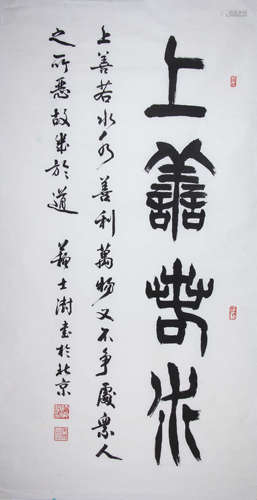 上善若水
上善若水水善利萬物又不争處衆人
之所惡故幾於道 蘇士澍書於北京